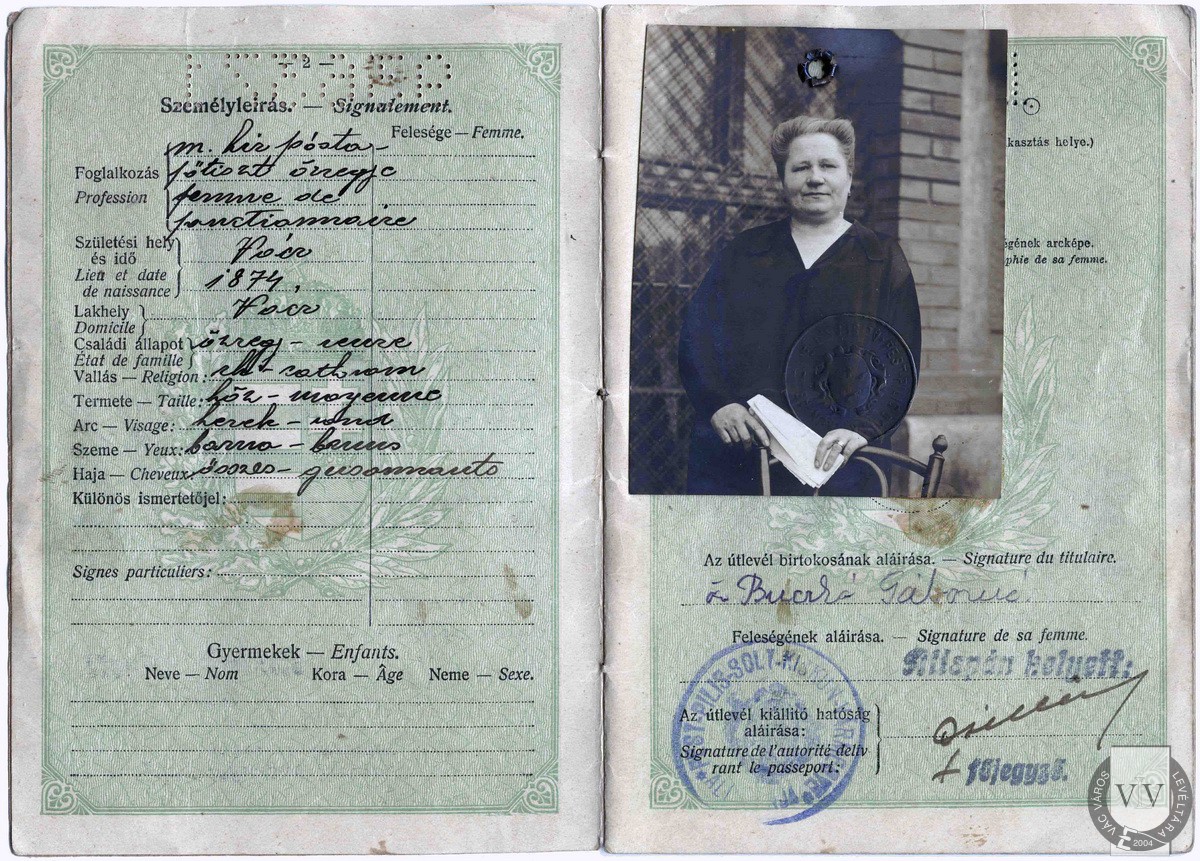 — 2 —
Személyleírás. — Signalement.
Felesége — Femme.
m. kir posta-
Foglalkozás főtiszt özvegye
Profession femme de
fonctionnaire
Születési hely
és idő Vác
Lieu et date 1874
de naissance
Lakhely Vác
Domicile
Családi állapot özvegy - veuve
État de famille
Vallás — Religion: cath. rom
Termete — Taille: köz - moyenne
Arc — Visage: kerek - rond
Szeme — Yeux: barna - bruns
Haja — Cheveux: őszes - grisonnants
Különös ismertetőjel:
Signes particuliers:
Gyermekek — Enfants.
Neve — Nom Kora — Âge Neme — Sexe.
kasztás helye.)
gének arcképe.
phie de sa femme.
Az útlevél birtokosának aláírása. — Signature du titulaire.
Gáborné
Feleségének aláírása. — Signature de sa femme.
Alispán helyett:
PEST-PILIS-SOLT-KISKUN
Az útlevél kiállító hatóság
aláírása:
Signature de l'autorité deliv
rant le passeport:
főjegyző.
VÁC VÁROS LEVÉLTÁRA
VV
2004